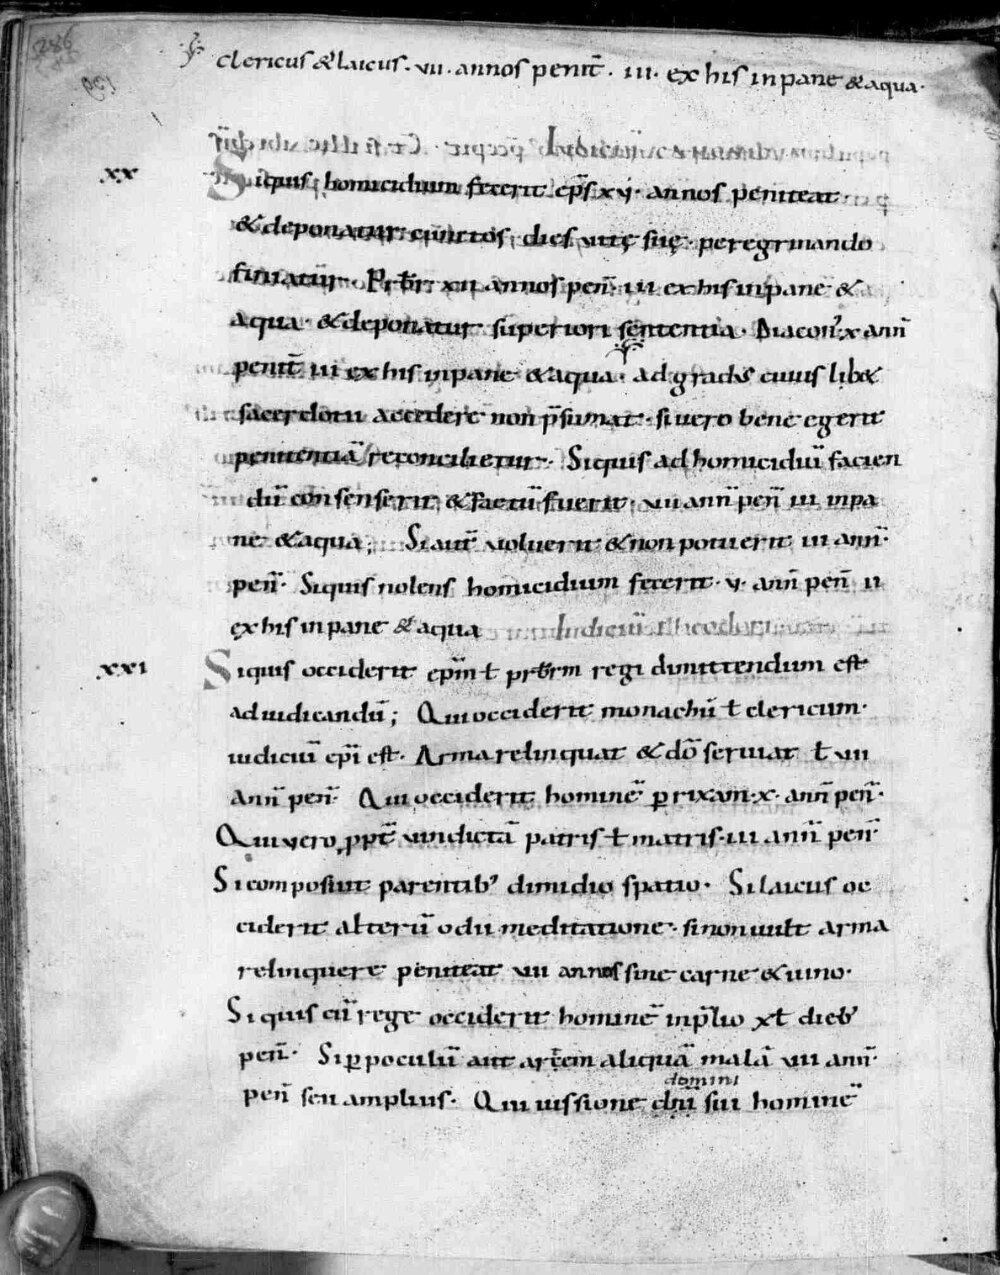 286
clericus & laicus. vii. annos penit̄. iii. ex his in pane & aqua.
xx
Siquis homicidium fecerit ep̄s xv. annos peniteat
& deponatur cunctos dies vitę suę. peregrinando
finiatur. Prb̄r xii annos pen̄. iii ex his in pane &
aqua. & deponatur superiori sententia. Diacon' x ann̄
penit̄ iii ex his in pane & aqua. ad gradū cuius lib&
sacerdotii accedere non p̄sumat. si vero bene egerit
penitentiā reconcilietur. Siquis ad homicidiū facien
dū consenserit & factū fuerit. vii ann̄ pen̄ iii in pa
ne & aqua; Si aut̄ voluerit & non potuerit iii ann̄.
pen̄. Siquis nolens homicidium fecerit. v. ann̄ pen̄ ii
ex his in pane & aqua
xxi
Siquis occiderit ep̄m ł prb̄rm regi dimittendum est
ad iudicandū; Qui occiderit monachū ł clericum.
iudiciū ep̄i est. Arma relinquat & dō seruiat ł vii
ann̄ pen̄. Qui occiderit hominē p rixam. x. ann̄ pen̄.
Qui vero ppt̄ vindictā patris ł matris. iii ann̄ pen̄
Si composuit parentib' dimidio spatio. Si laicus oc
ciderit alterū odii meditatione. si non uult arma
relinquere peniteat vii annos sine carne & uino.
Siquis cū rege occiderit hominē in p̄lio xl dieb'
pen̄. Si p poculū aut artem aliquā malā vii ann̄.
domini
pen̄ seu amplius. Qui iussione dn̄i sui hominē